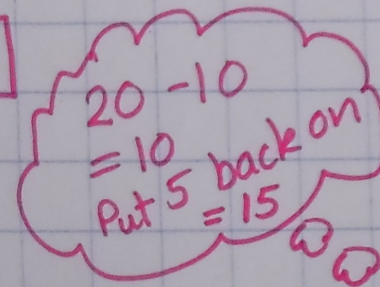 20 - 10
= 10
Put 5 back on
= 15